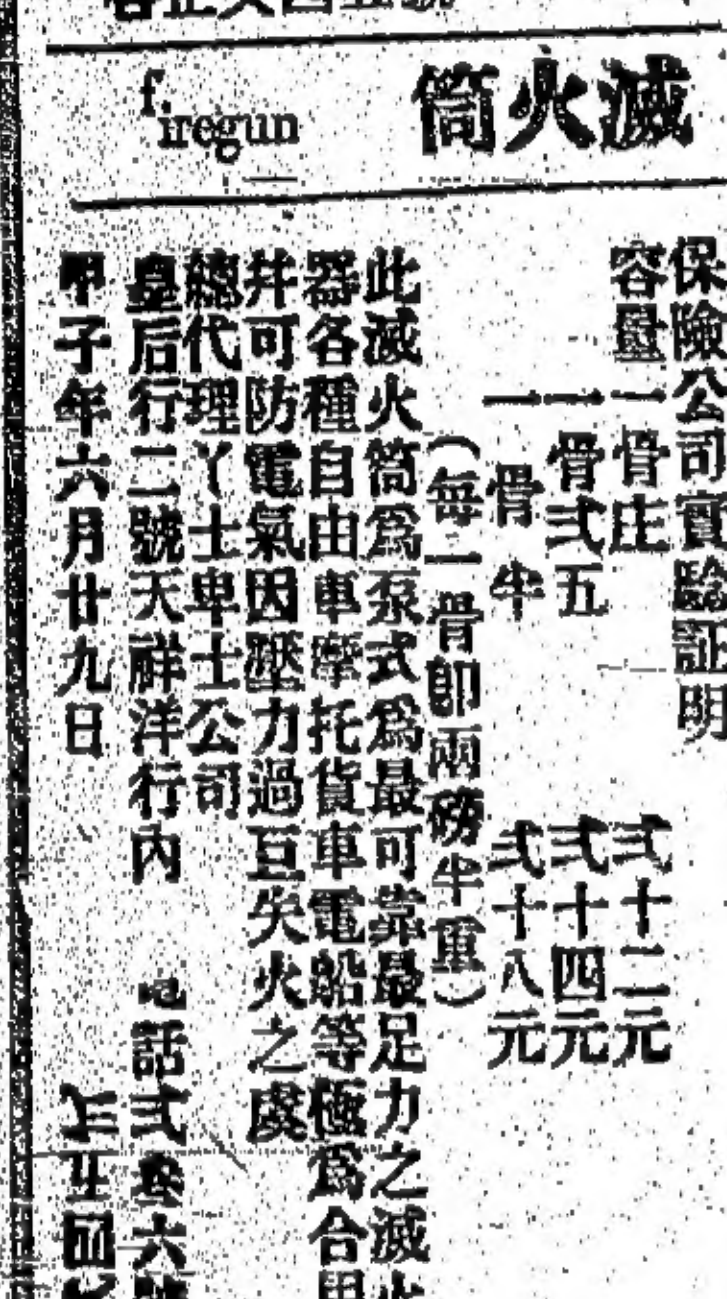 滅火筒
firegun
保險公司實驗証明
容量一骨庄 弍十二元
一骨弍五 弍十四元
一骨半 弍十八元
(每一骨卽兩磅半重)
此滅火筒爲泵式爲最可靠最足力之滅火
器各種自由車摩托貨車電船等極爲合用
幷可防電氣因壓力過巨失火之虞
總代理丫士卑士公司
皇后行二號天祥洋行內 電話弍叁六號
甲子年六月廿九日